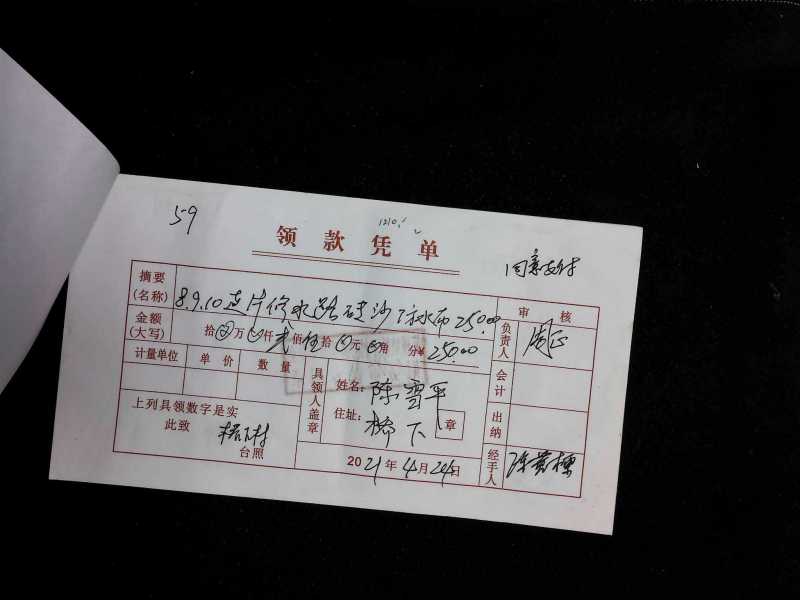 59
1210.
领款凭单
同意支付
摘要(名称) 8.9.10连片修水 250.00
审核
金额(大写) 拾万仟贰佰伍拾元角分¥250.00
负责人
计量单位 单价 数量
具领人盖章
姓名: 陈雪平
住址: 桥下
章
会计
出纳
上列具领数字是实
此致
村
台照
2021年4月24日
经手人